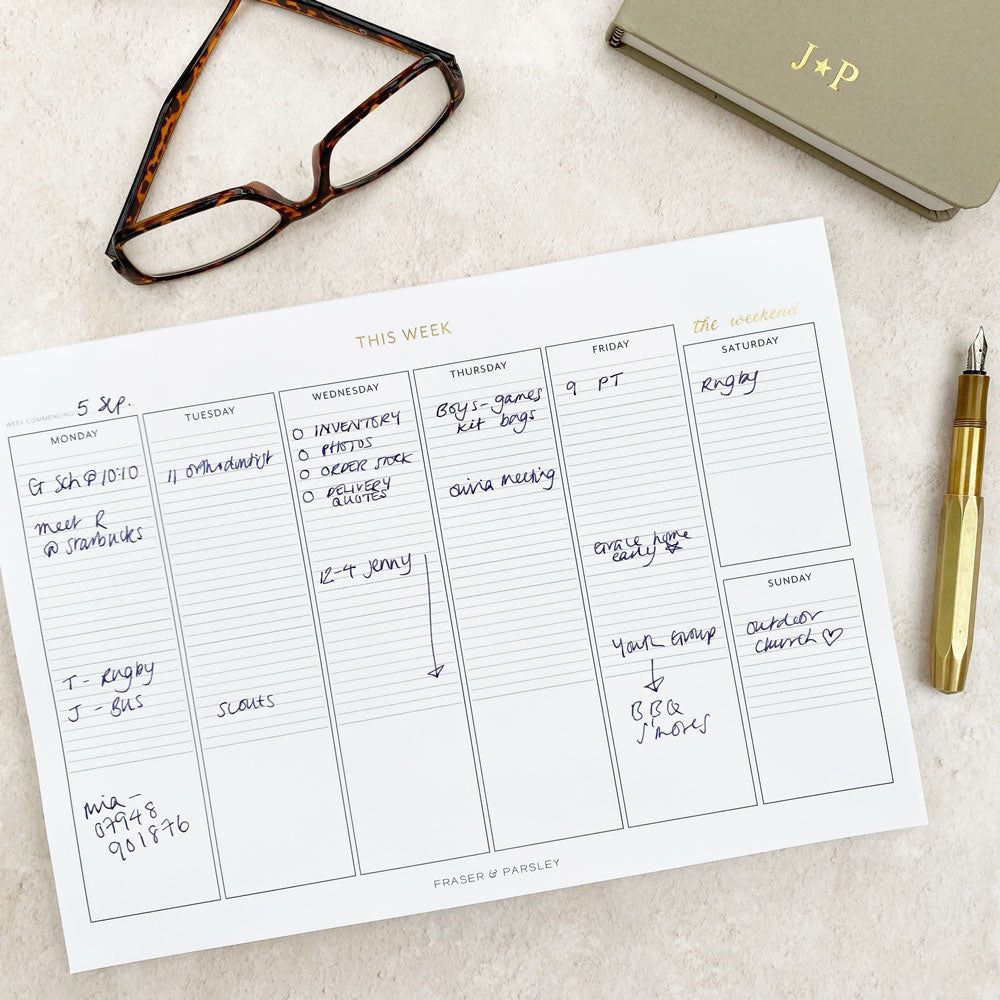 J★P
THIS WEEK
the weekend
WEEK COMMENCING 5 Sep.
MONDAY
G Sch @ 10:10
meet R
@ Starbucks
T - Rugby
J - BUS
Mia -
07948
901876
TUESDAY
11 orthodontist
Scouts
WEDNESDAY
○ INVENTORY
○ PHOTOS
○ ORDER STOCK
○ DELIVERY
QUOTES
12-4 Jenny
THURSDAY
Boys - games
kit bags
Olivia meeting
FRIDAY
9 PT
Grace home
early ☆
Youth Group
↓
BBQ
S'mores
SATURDAY
Rugby
SUNDAY
outdoor
church ♡
FRASER & PARSLEY